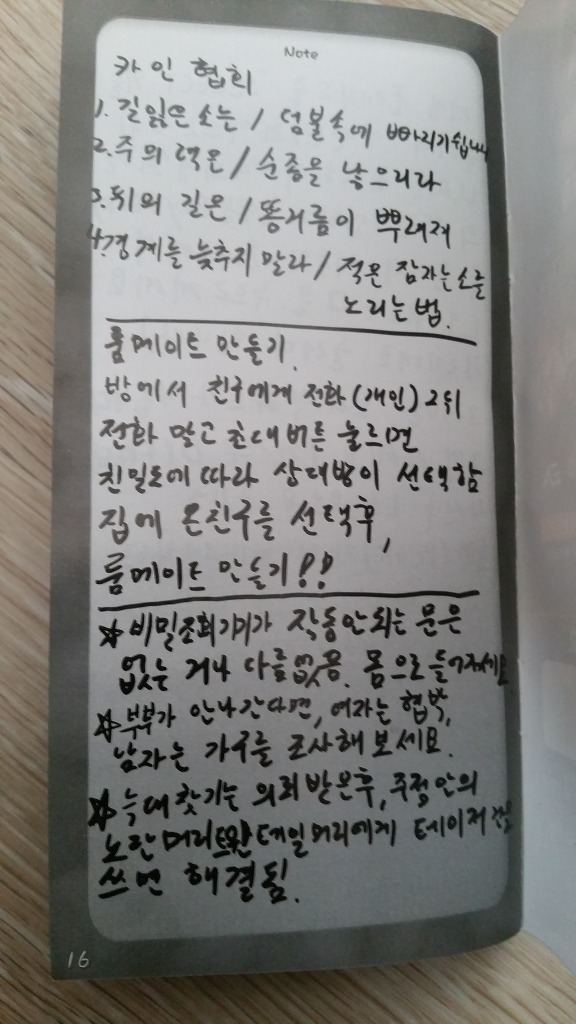 Note
카인 협회
1. 길잃은 소는 / 덤불속에 빠지기쉽니다
2. 주의 역은 / 순종을 낳으리라
3. 뒤의 길은 / 똥거름이 뿌려져
4. 경계를 늦추지 말라 / 적은 잠자는 소를
노리는 법.
룸메이트 만들기.
방에서 친구에게 전화(개인) 2뒤
전화 말고 초대버튼 눌르면
친밀도에 따라 상대방이 선택함
집에 온친구를 선택후,
룸메이트 만들기!!
☆ 비밀조회기가 작동안되는 문은
없는 거나 다름없음. 몸으로 들어가세요.
☆ 부부가 안나간다면, 여자는 협박,
남자는 가구를 조사해 보세요.
☆ 늑대찾기는 의뢰 받은후, 주점안의
노란머리 포니테일머리에게 테이저 건을
쓰면 해결됨.
16